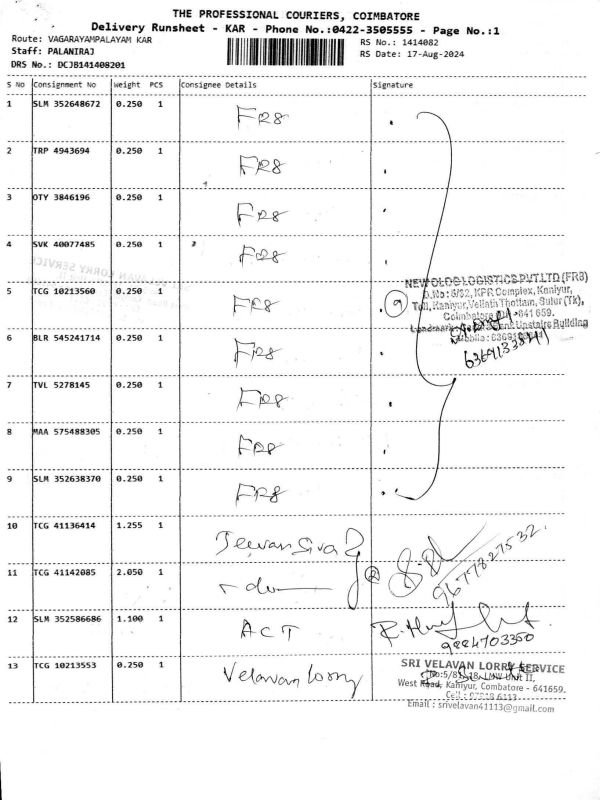 THE PROFESSIONAL COURIERS, COIMBATORE
Delivery Runsheet - KAR - Phone No.:0422-3505555 - Page No.:1
Route: VAGARAYAMPALAYAM KAR
RS No.: 1414082
Staff: PALANIRAJ
RS Date: 17-Aug-2024
DRS No.: DCJB141408201
S No Consignment No Weight PCS Consignee Details Signature
1 SLM 352648672 0.250 1 FR8
2 TRP 4943694 0.250 1 FR8
3 OTY 3846196 0.250 1 FR8
4 SVK 40077485 0.250 1 FR8
NEWOLOG LOGISTICS PVT.LTD (FR8)
5 TCG 10213560 0.250 1 FR8 9
D.No: 6/92, KPR Complex, Kaniyur,
Toll, Kaniyur, Vellath Thottam, Sulur (Tk),
Coimbatore 641 659.
Upstairs Building
6 BLR 545241714 0.250 1 FR8
7 TVL 5278145 0.250 1 FR8
8 MAA 575488305 0.250 1 FR8
9 SLM 352638370 0.250 1 FR8
10 TCG 41136414 1.255 1 Jeevan Siva
9677827532
11 TCG 41142085 2.050 1 2
12 SLM 352586686 1.100 1 ACT
9884703350
13 TCG 10213553 0.250 1 Velavan lorry
SRI VELAVAN LORRY SERVICE
Unit II,
West Road, Kaniyur, Combatore - 641659.
Email : srivelavan41113@gmail.com